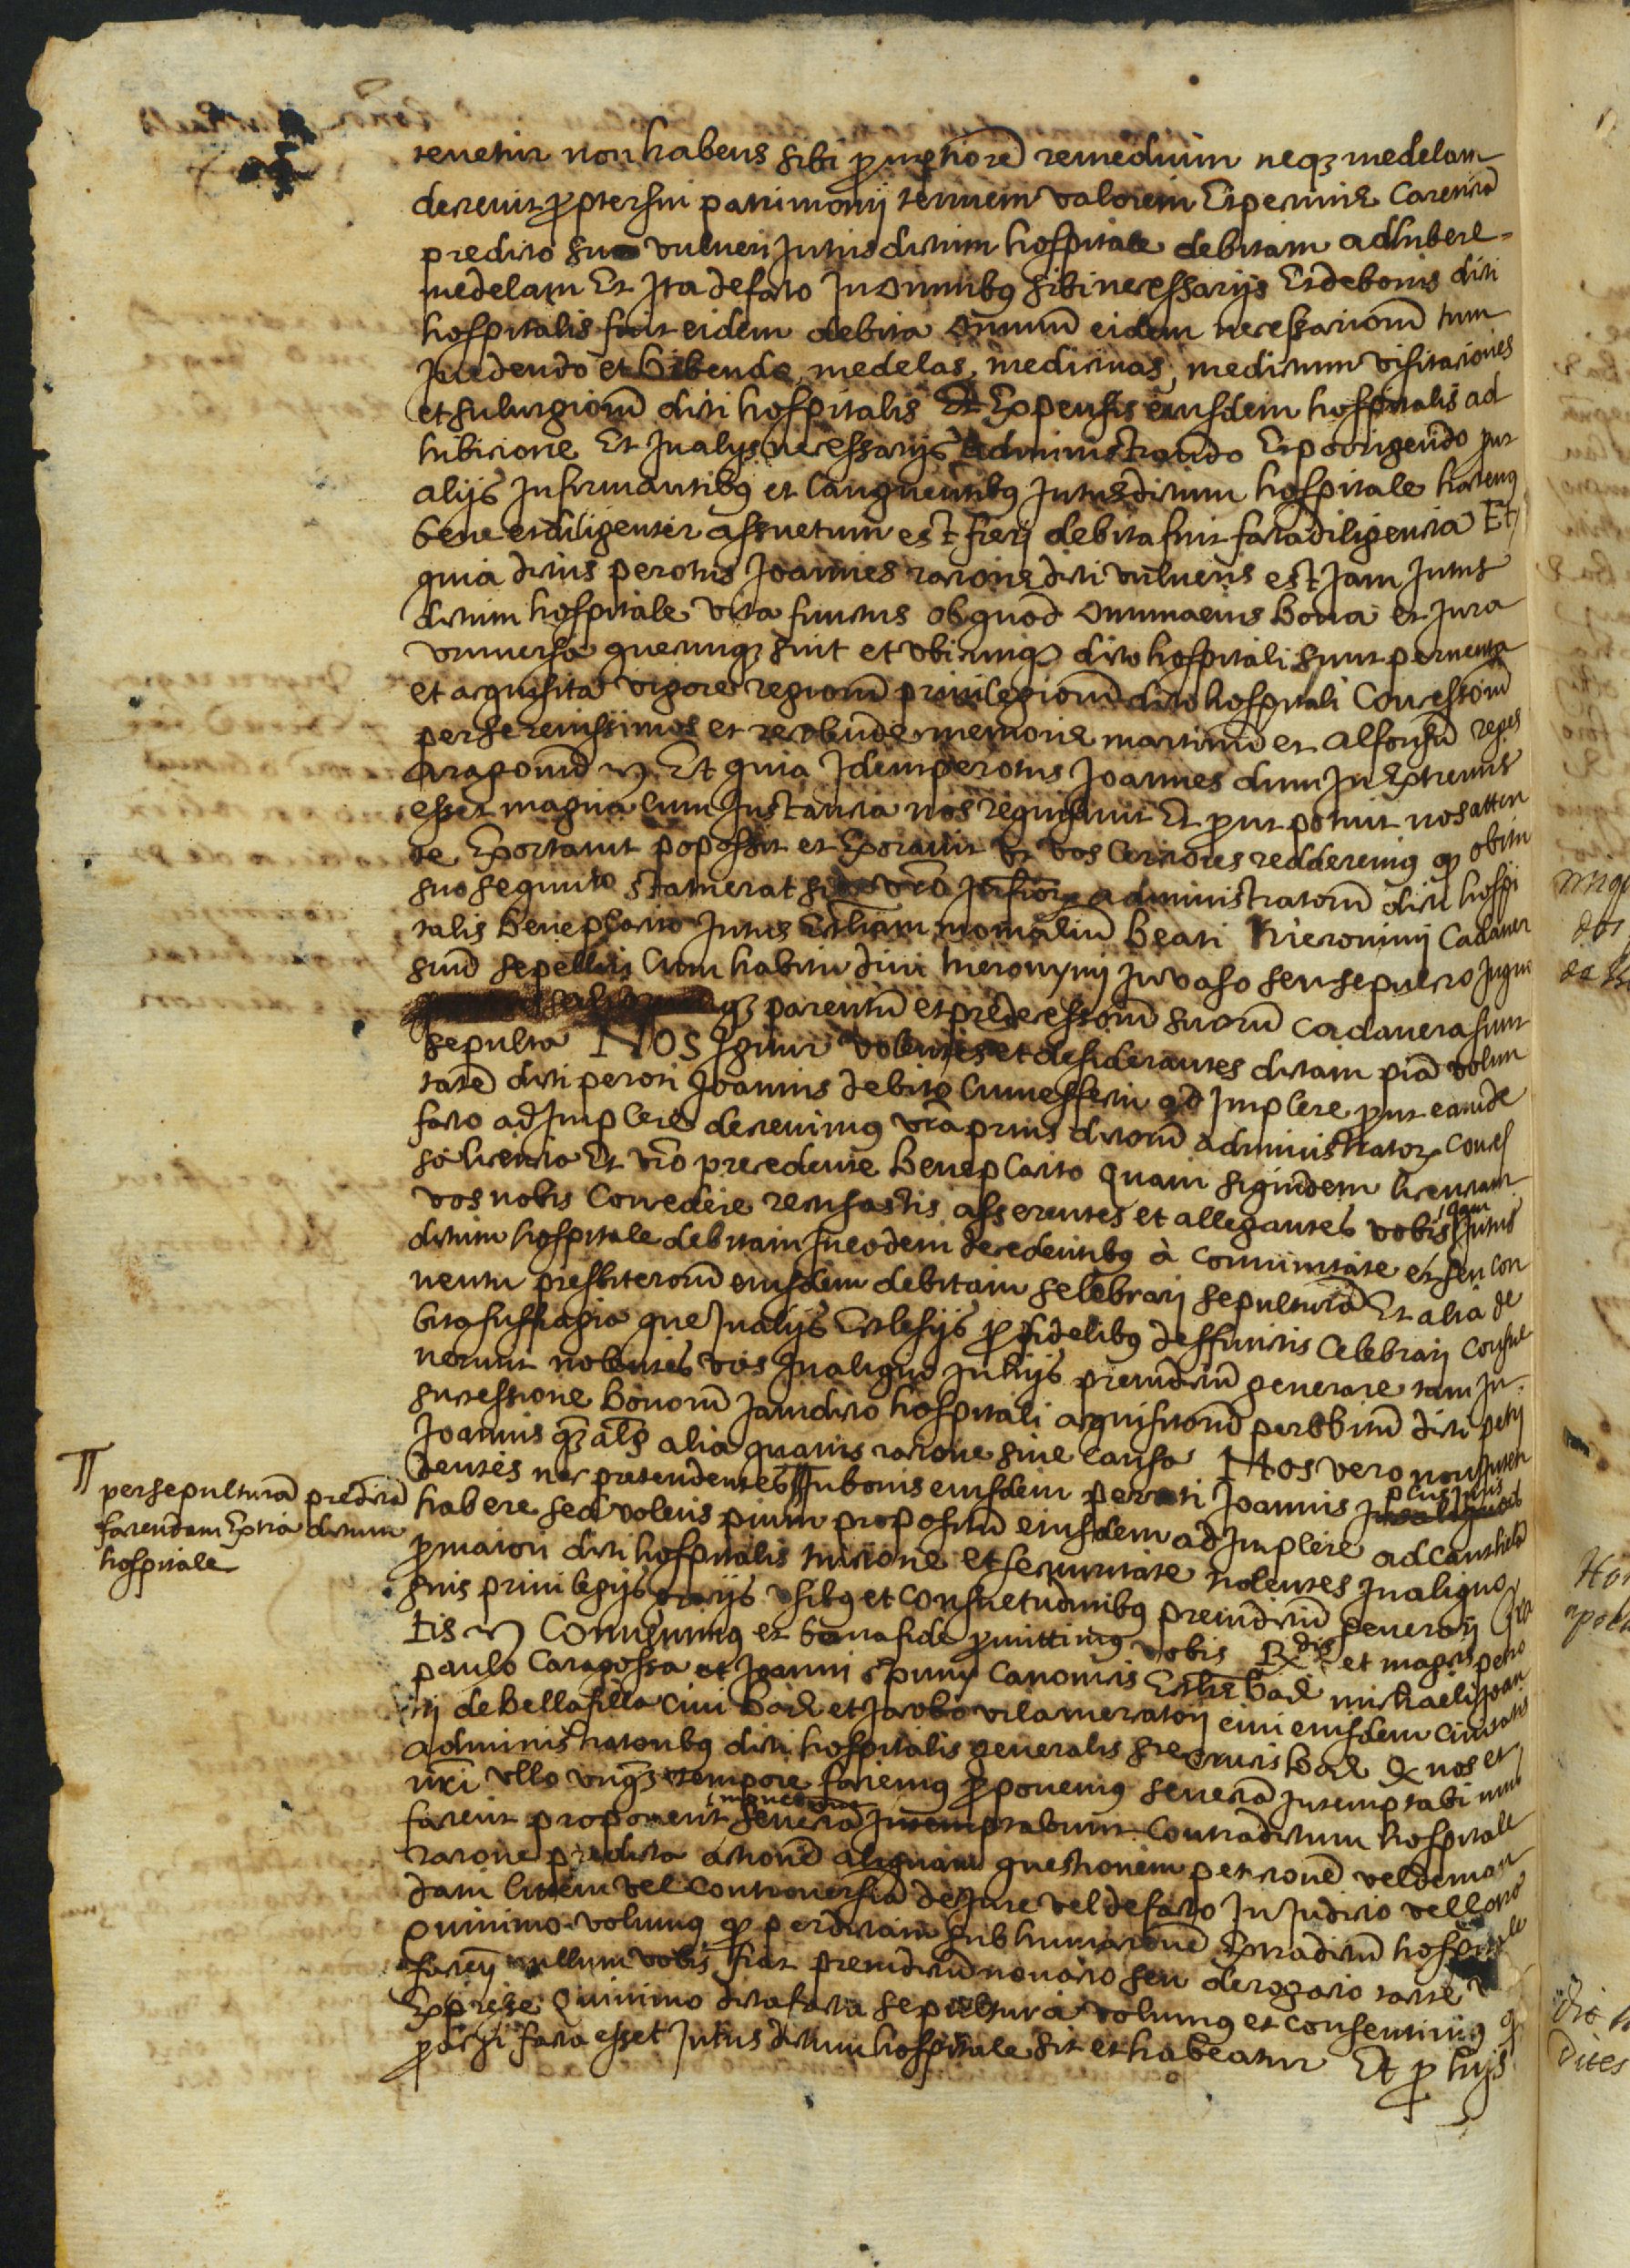 tenetur non habens sibi promptiorē remedium neq3 medelam
decreuit propter sui patrimonij tenuem valorem Et pecunie carenciā
predicto suo vulneri Intus dictum hospitale debitam adhibere
medelam Et Ita de facto In omnibus sibi necessarijs Et de bonis dicti
hospitalis fuit eidem debita omniū eidem necessariorū tum
In edendo et bibendo medelas, medicinas, medicum visitaciones
et sirurgiorū dicti hospitalis Et Expensis eiusdem hospitalis ad
hibicione Et In alijs necessarijs Administrando Et porrigendo put
alijs Infirmantibus et languentibus Intus dictum hospitale hactenus
bene et diligenter assuetum est fierj debita fuit facta diligencia Et
quia dictus perotus Joannes racione dicti vulneris est Jam Intus
dictum hospitale vita functus ob quod omnia eius bona et Jura
vniuersa quecunq3 sint et vbicunq3 dicto hospitali sunt peruenta
et acquisita vigore regiorū priuilegiorū dicto hospitali Concessorū
per serenissimos et recolende memorie martinū et alfonsū reges
Aragonū Et quia Idem perotus Joannes dum In Extremis
esset magna cum Instancia nos requisiuit Et prout potuit nos atten
te Exortauit poposcit et Exorauit vt vos Certiores redderemus q obitu
suo sequuto statuerat administratorū dicti hospi
talis beneplacito Intus Ecclesiam monialiū beati hieronimj Cadauer
suū sepellirj Cum habitu diui hieronymj In vaso seu sepulcro In quo
q3 parentū et predecessorū suorū cadauera sunt
sepulta NOS Igitur volentes et desiderantes dictam piā volun
tatē dicti peroti Joannis debito cum effectu ad Implere prout eamde
facto ad Implere decreuimus vrā prius dictorū administrator Conces
sa licencia Et vrō precedente beneplacito Quam siquidem licenciam
vos nobis Concedere recusastis asserentes et allegantes vobis quam Intus
dictum hospitale debitam In eodem decedentibus à comunitate et seu con
uentu presbiterorū eiusdem debitam selebrarj sepulturā Et alia de
bita suffragia que In alijs Ecclesijs pro fidelibus deffunctis Celebrarj Consue
uerunt nolentes vos In aliquo In hijs preiudiciū generare tam In
successione bonorū Jamdicto hospitali acquisitorū per obitū dicti petrj
Joannis q3 alias alia quauis racione siue causa Nos vero non Inten
dentes nec pretendentes In bonis eiusdem peroti Joannis plus Juris
habere sed volens pium propositū eiusdem ad Implere ad cauthelā
pro maiori dicti hospitalis tuicione et securitate nolentes In aliquo
suis priuilegijs vsibus et consuetudinibus preiudiciū generarj Gra
tis Conuenimus et bona fide promittimus vobis Rdis et magcis petro
paulo Caragossa et Joanni spuny Canonicis Ecclesie barc michaeli Joan
nj de bellafilla ciui barc et Jacobo vila mercatorj ciui eiusdem ciuitatis
administratoribus dicti hospitalis generalis Ste Crucis barc q nos et
nrī vllo vnq3 tempore faciemus proponemus seu etiā Intemptabimus
facient proponent mouebunt seu etiā Intemptabunt Contra dictum hospitale
racione predicta actionē aliquam questionem peticionē vel deman
dam litem vel controuersiā de Jure vel de facto In Judicio vel extra
quinimo volumus q per dictam subhumacionē Extra dictū hospitale
facij nullum vobis fiat preiudiciū nouacio seu derogacio tacite
Exprese Quinimo dicta facta sepultura volumus et consentimus q
pro ac si facta esset Intus dictum hospitale sit et habeatur Et pro hijs
per sepulturā predictā
faciendam Extra dictum
hospitale